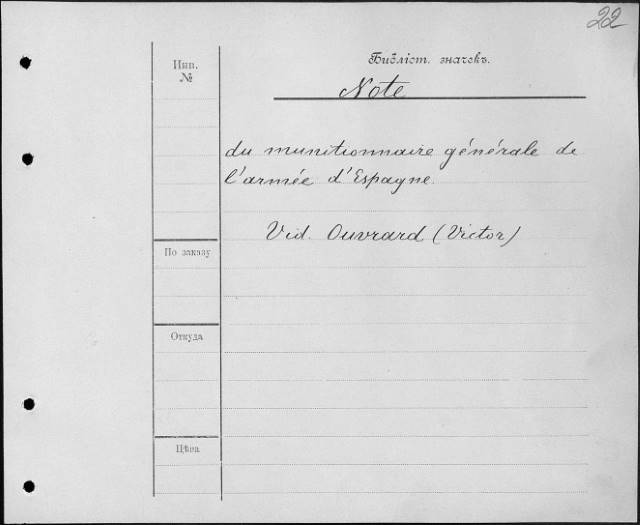 22
Библіот. значекъ.
Инв.
№
Note
du munitionnaire générale de
l'armée d'Espagne.
Vid. Ouvrard (Victor)
По заказу
Откуда
Цѣна